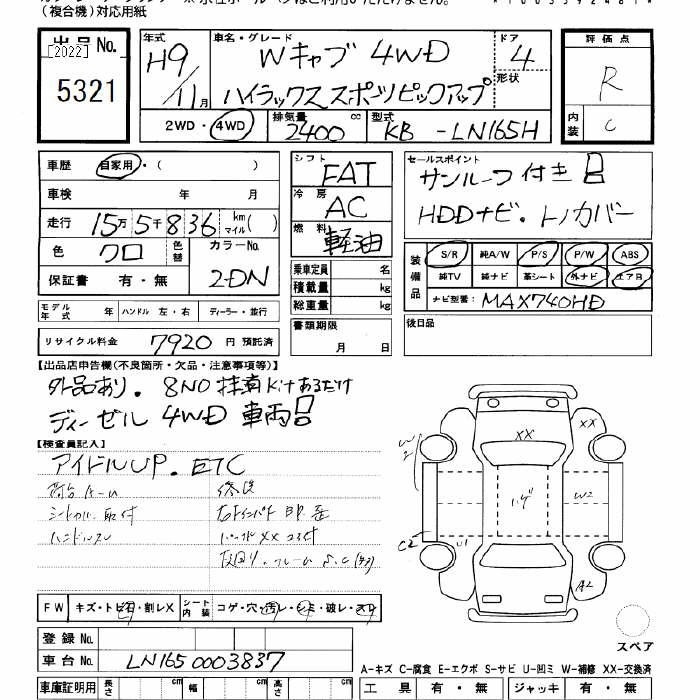 (複合機)対応用紙
出品No.
[2022]
5321
年式
H9/11月
車名・グレード
Wキャブ 4WD
ハイラックススポーツピックアップ
ドア
4
形状
2WD・4WD
排気量
2400 cc
型式
KB-LN165H
評価点
R
内装
C
車歴 自家用・( )
車検 年 月
走行 15万5千836 km マイル( )
色 クロ 色替
カラーNo.
2-DN
保証書 有・無
シフト
FAT
冷房
AC
燃料
軽油
乗車定員 名
積載量 kg
総重量 kg
書類期限
月 日
セールスポイント
サンルーフ付き
HDDナビ・トノカバー
装備品
S/R 純A/W P/S P/W ABS
純TV 純ナビ 革シート 外ナビ エアB
ナビ型番: MAX740HD
後日品
モデル年式 年 ハンドル 左・右 ディーラー・並行
リサイクル料金 7920 円 預託済
【出品店申告欄(不良箇所・欠品・注意事項等)】
外品あり. 8NO
ディーゼル 4WD 車両
【検査員記入】
アイドルUP. ETC
シートカバー取付
ハンドルスレ
FW キズ・トビ石・割レX
シート内装 コゲ・穴・汚レ・シミ・破レ・スレ
登録No.
車台No. LN165 0003837
車庫証明用 長さ cm 幅 cm 高さ cm
XX
XX
W2
ハゲ
W2
C2
U1
A2
スペア
A−キズ C−腐食 E−エクボ S−サビ U−凹ミ W−補修 XX−交換済
工具 有・無 ジャッキ 有・無